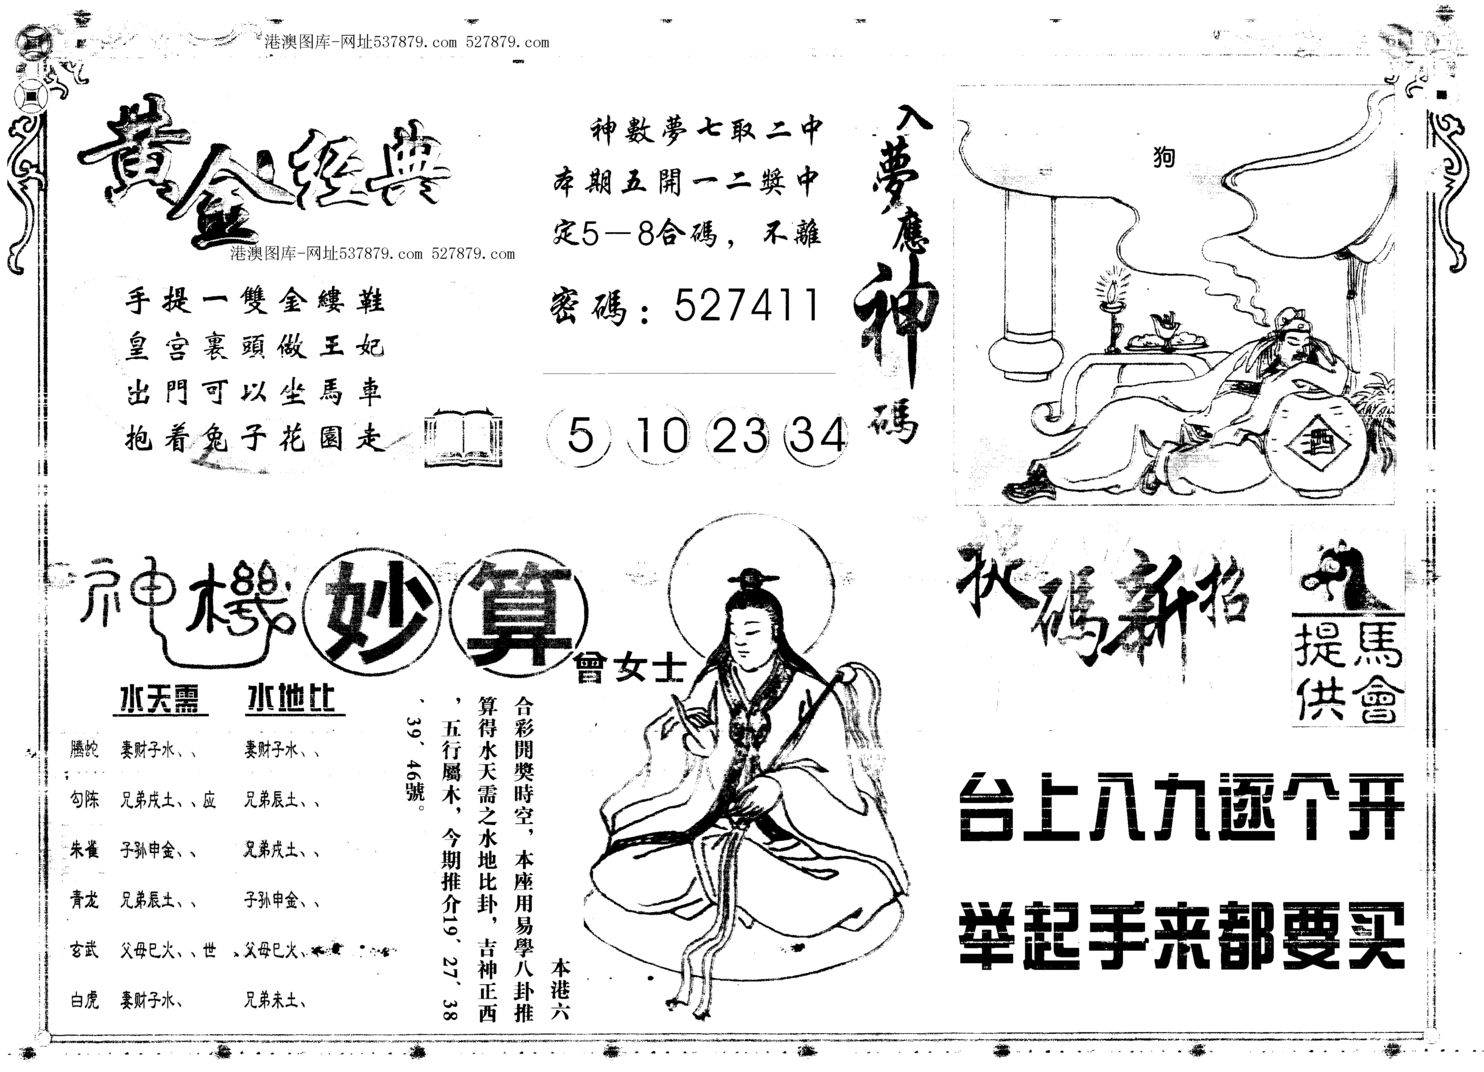 港澳图库-网址537879.com 527879.com
黄金经典
港澳图库-网址537879.com 527879.com
手提一雙金縷鞋
皇宮裏頭做王妃
出門可以坐馬車
抱着兔子花園走
神數夢七取二中
本期五開一二獎中
定5－8合碼，不離
密碼：527411
5 10 23 34
入夢應神碼
狗
酒
神機妙算
曾女士
水天需 水地比
騰蛇 妻财子水、、 妻财子水、、
勾陈 兄弟戌土、、应 兄弟辰土、、
朱雀 子孙申金、、 兄弟戌土、、
青龙 兄弟辰土、、 子孙申金、、
玄武 父母巳火、、世 父母巳火、
白虎 妻财子水、 兄弟未土、
本港六
合彩開獎時空，本座用易學八卦推
算得水天需之水地比卦，吉神正西
，五行屬木，今期推介19、27、38
、39、46號。
碼新招
馬會
提供
台上八九逐个开
举起手来都要买